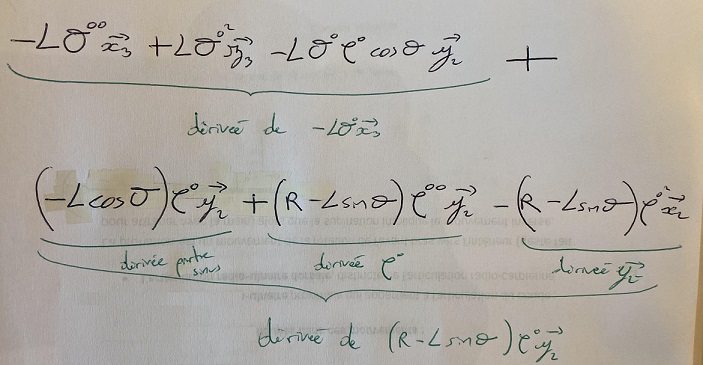 -Lθ°° x⃗₃ + Lθ°² y⃗₃ - Lθ° φ° cosθ y⃗₂ +
dérivée de -Lθ° x⃗₃
(-L cosθ) φ° y⃗₂ + (R - L sinθ) φ°° y⃗₂ - (R - L sinθ) φ°² x⃗₂
dérivée partie sinus dérivée φ° dérivée y⃗₂
dérivée de (R - L sinθ) φ° y⃗₂